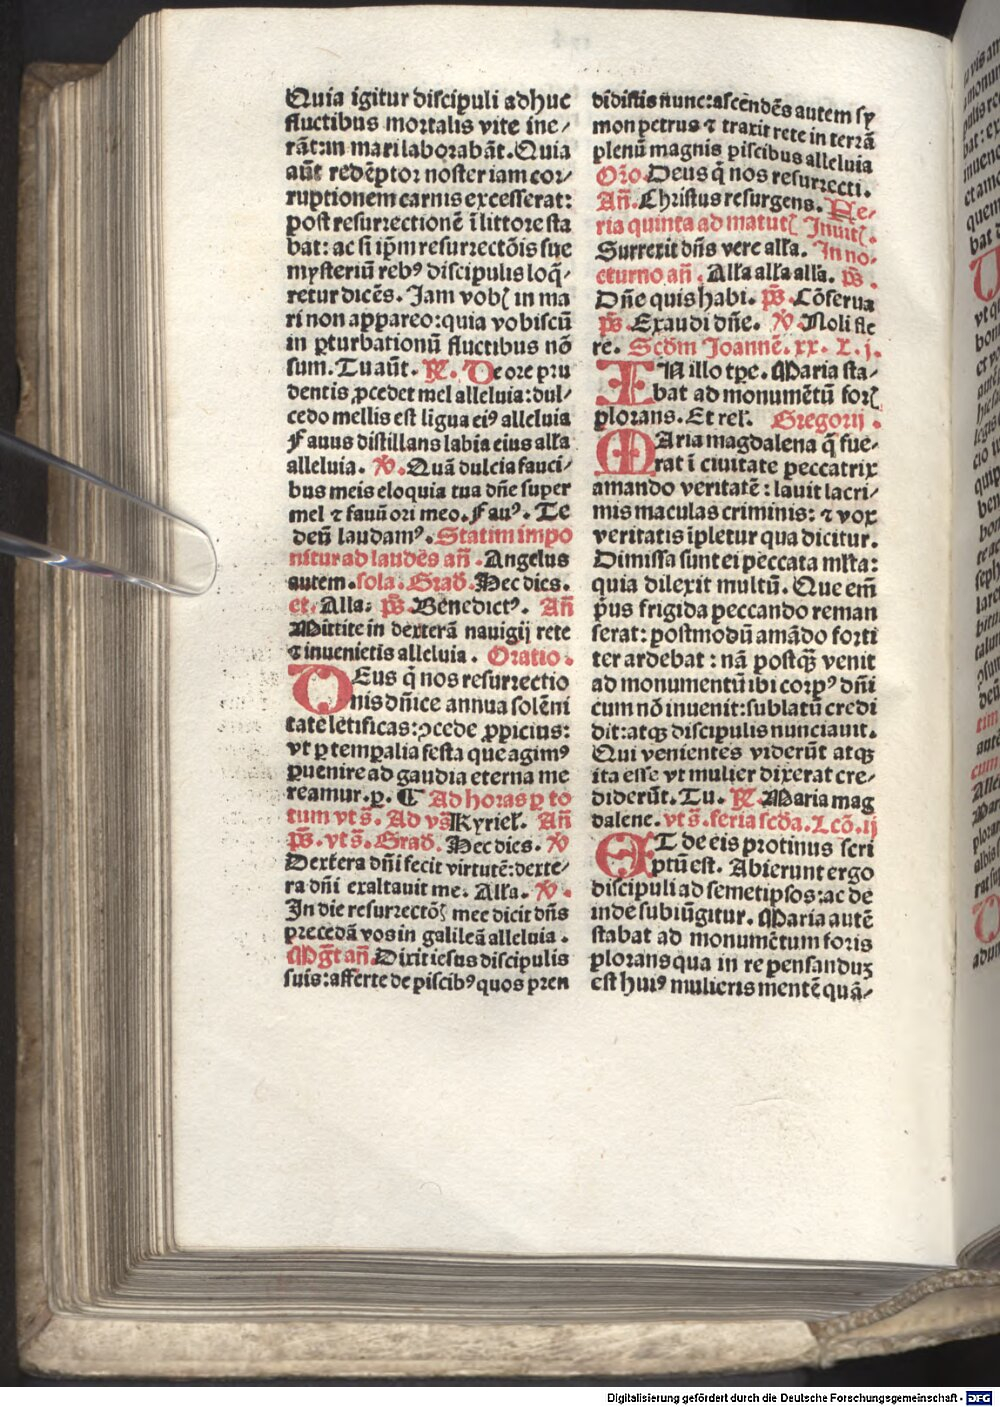 Quia igitur discipuli adhuc
fluctibus mortalis vite ine/
rãt: in mari laborabãt. Quia
aũt redẽptor noster iam cor/
ruptionem carnis excesserat:
post resurrectionẽ ĩ littore sta
bat: ac si ip̃m resurrectõis sue
mysteriũ rebꝰ discipulis loq̃/
retur dicẽs. Jam vobꝭ in ma
ri non appareo: quia vobiscũ
in ꝑturbationũ fluctibus nõ
sum. Tu aũt. ꝶ. De ore pru
dentis ꝓcedet mel alleluia: dul/
cedo mellis est ligua eiꝰ alleluia
Fauus distillans labia eius alľa
alleluia. ℣. Quã dulcia fauci/
bus meis eloquia tua dñe super
mel ⁊ fauũ ori meo. Fauꝰ. Te
deũ laudamꝰ. Statim impo
nitur ad laudes añ. Angelus
autem. sola. Grad̃. Hec dies.
et. Alľa: p̃s. Benedictꝰ. Añ
Mittite in dexterã nauigij rete
⁊ inuenietis alleluia. Oratio.
DEus q̃ nos resurrectio
nis dñice annua solẽni
tate letificas: ꝯcede ꝓpicius:
vt ꝑ temꝑalia festa que agimꝰ
ꝑuenire ad gaudia eterna me
reamur. p. ¶ Ad horas ꝑ to
tum vt s̃. Ad vs̃ Kyrieľ. Añ
p̃s. vt s̃. Grad̃. Hec dies. ℣
Dextera dñi fecit virtutẽ: dexte/
ra dñi exaltauit me. Alľa. ℣.
In die resurrectõꝭ mee dicit dñs
precedã vos in galileã alleluia.
Mg̃t añ. Dixit iesus discipulis
suis: afferte de piscibꝰ quos pren
didistis nunc: ascendẽs autem sy
mon petrus ⁊ traxit rete in terrã
plenũ magnis piscibus alleluia
Oro. Deus q̃ nos resurrecti.
Añ. Christus resurgens. Fe/
ria quinta ad matutꝭ Inuitꝭ.
Surrexit dñs vere alľa. In no/
cturno añ. Alľa alľa alľa. p̃s.
Dñe quis habi. p̃s. Cõserua
p̃s. Exaudi dñe. ℣ Noli fle
re. Scd̃m Joannẽ. xx. L. j.
IN illo tp̃e. Maria sta/
bat ad monumẽtũ forꝭ
plorans. Et reľ. Gregorij.
MAria magdalena q̃ fue/
rat ĩ ciuitate peccatrix
amando veritatẽ: lauit lacri/
mis maculas criminis: ⁊ vox
veritatis ĩpletur qua dicitur.
Dimissa sunt ei peccata mľta:
quia dilexit multũ. Que em̃
pꝰus frigida peccando reman
serat: postmodũ amãdo forti
ter ardebat: nã postqꝫ venit
ad monumentũ ibi corpꝰ dñi
cum nõ inuenit: sublatũ credi
dit: atqꝫ discipulis nunciauit.
Qui venientes viderũt atqꝫ
ita esse vt mulier dixerat cre/
diderũt. Tu. ꝶ. Maria mag
dalene. vt s̃. feria scd̃a. Lcõ. ij
ET de eis protinus scri
ptũ est. Abierunt ergo
discipuli ad semetipsos: ac de
inde subiũgitur. Maria autẽ
stabat ad monumẽtum foris
plorans qua in re pensanduꝫ
est huiꝰ mulieris mentẽ quã/
Digitalisierung gefördert durch die Deutsche Forschungsgemeinschaft - DFG